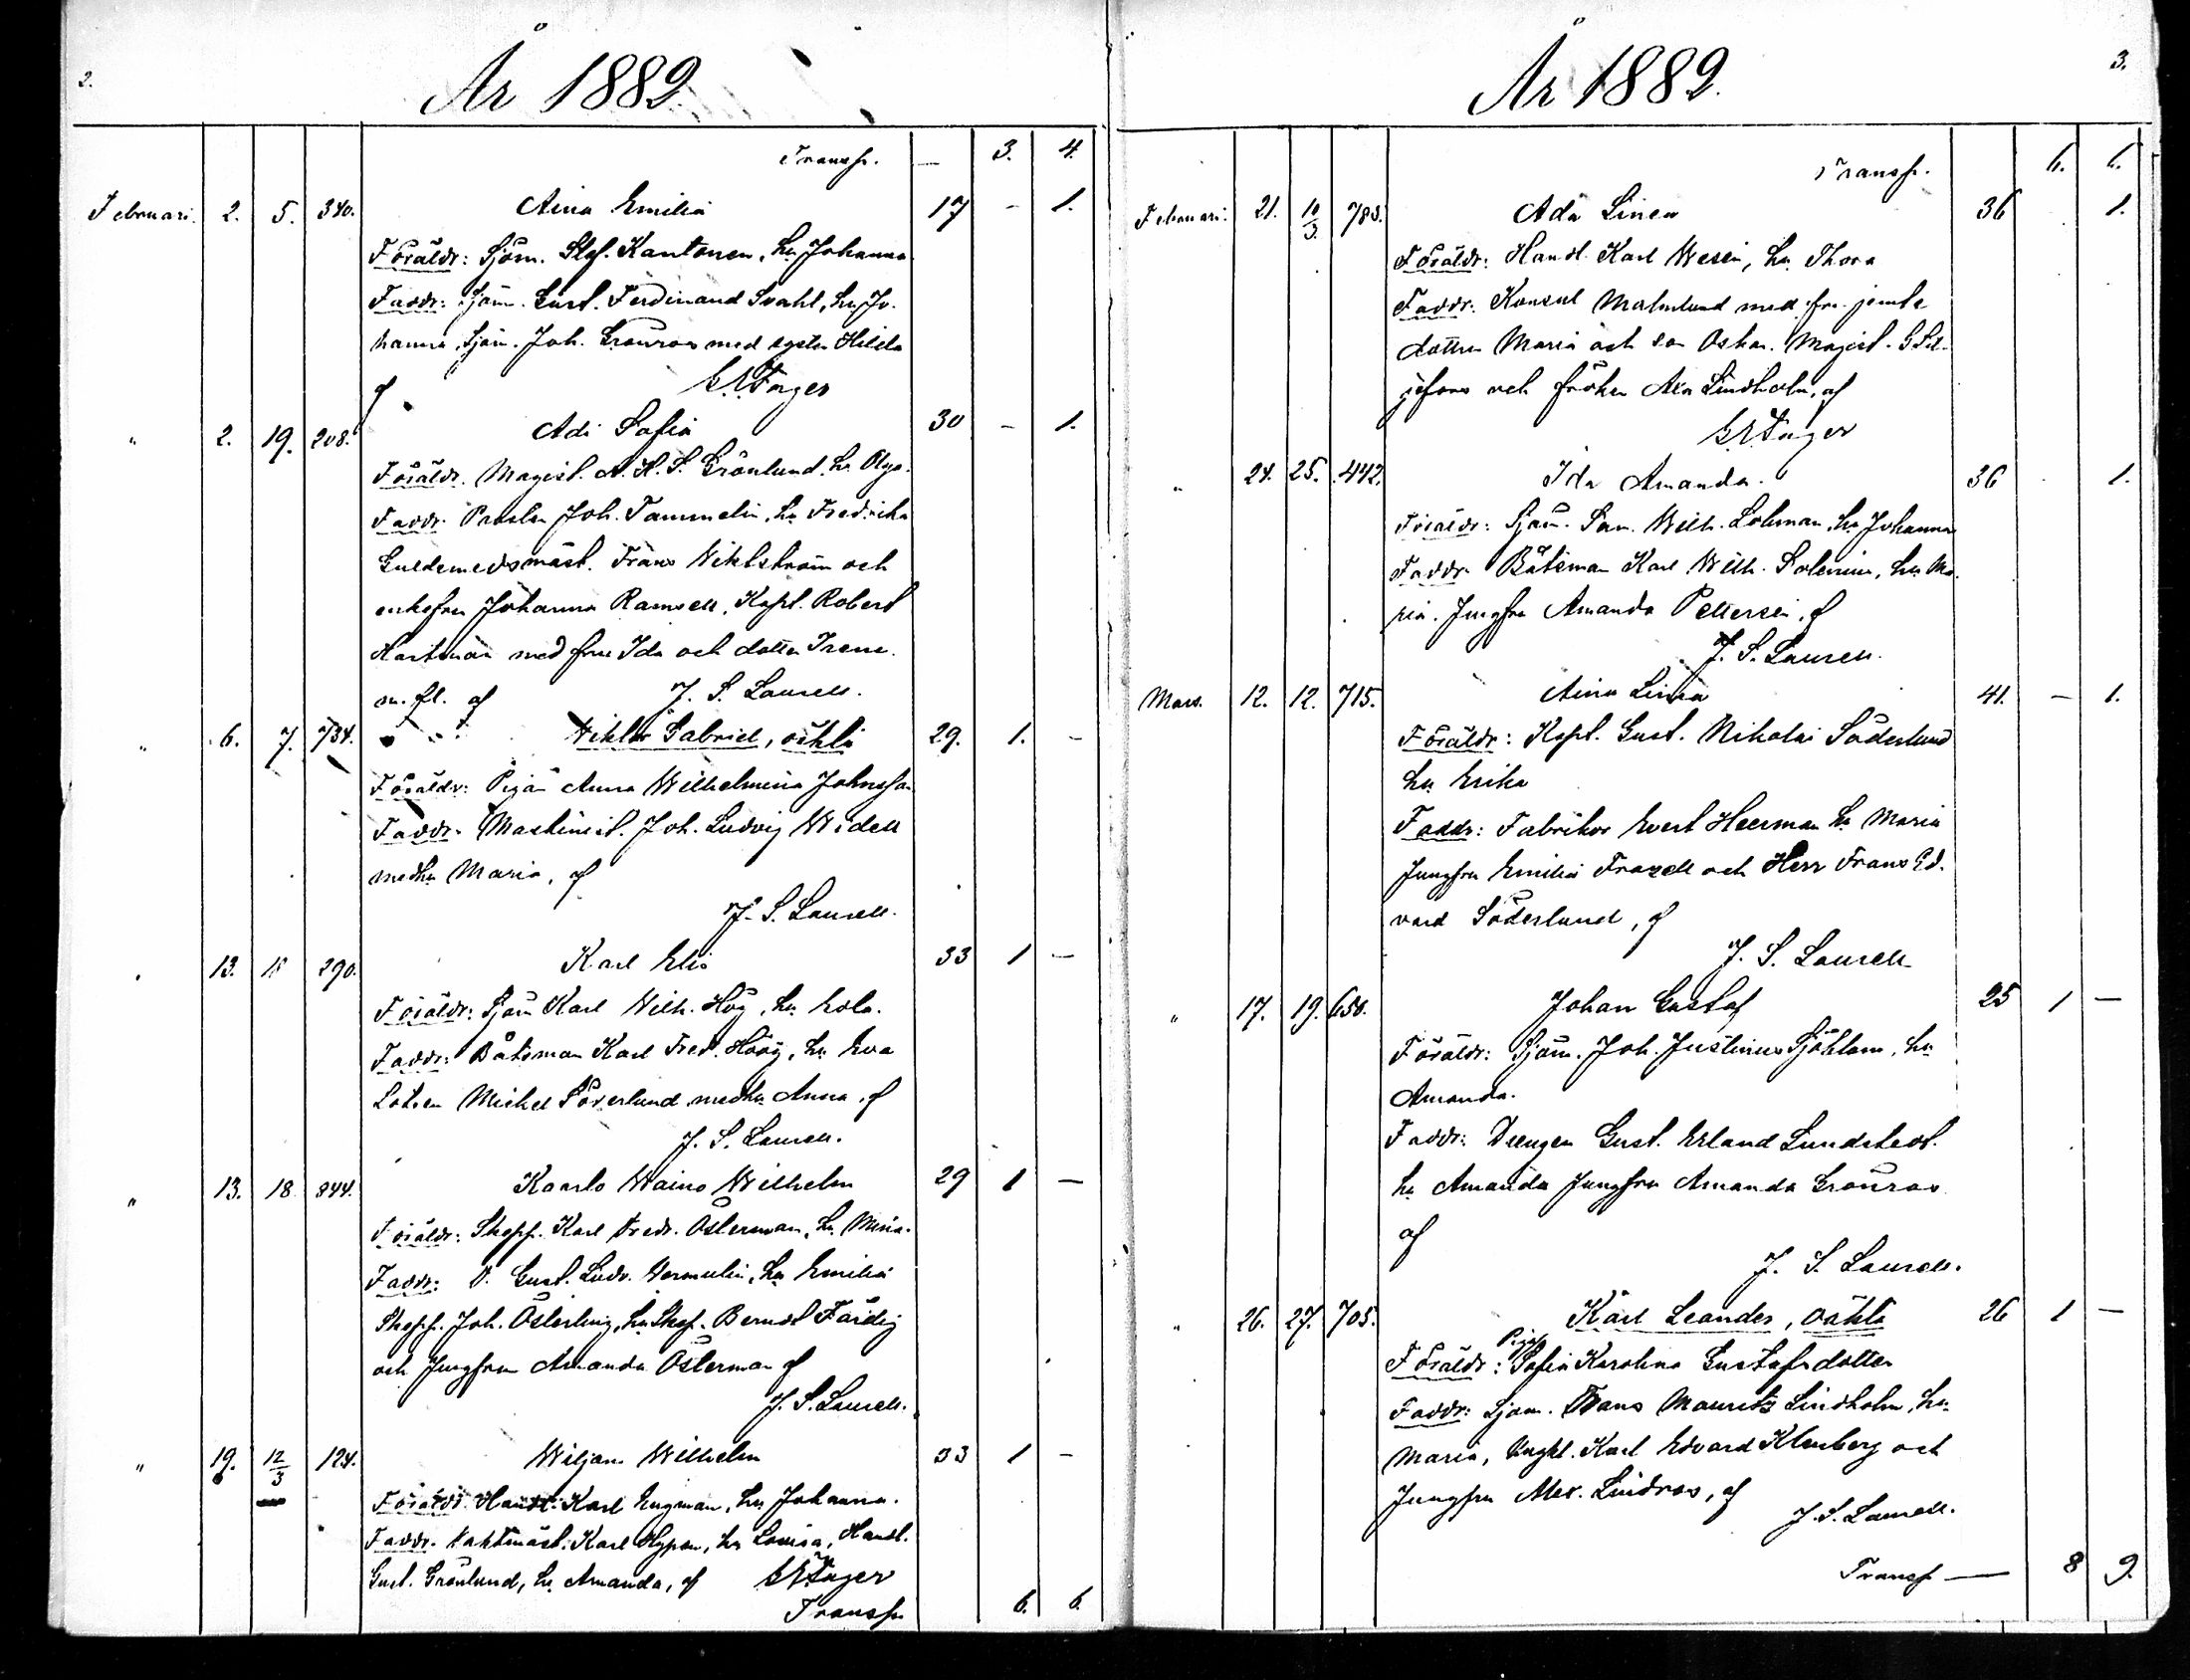 2.
År 1882.
Transp. — 3. 4.
Februari. 2. 5. 340. Aina Emilia 17 - 1.
Föräldr: Sjöm. Stef. Kantonen, hu Johanna
Faddr: Sjöm. Gust. Ferdinand Svahl, hu Jo-
hanna, Sjöm. Joh. Grönroos med syster Hilda
af
" 2. 19. 208. Adi Sofia 30 - 1.
Föräldr. Magist. A. H. S. Grönlund, hu Olga.
Faddr. Prosten Joh. Tammelin, hu Fredrika
Guldsmedsmäst. Frans Wiklström och
enkefru Johanna Ramsell, Kapt. Robert
Hartman med fru Ida och dotter Irene
m. fl. af J. S. Laurell.
" 6. 7. 734. Viktor Gabriel, oäkta 29. 1. -
Föräldr: Pigan Anna Wilhelmina Johnsson
Faddr. Maskinist. Joh. Ludvig Widell
med hu Maria, af
J. S. Laurell.
" 13. 18 290. Karl Elis 33 1 -
Föräldr: Sjöm Karl Wilh. Höög, hu Lola.
Faddr: Båtsman Karl Fred. Höög, hu Eva
Lotsen Michel Söderlund med hu Anna, af
J. S. Laurell.
" 13. 18 844. Kaarlo Waino Wilhelm 29 1 -
Föräldr: Skepp. Karl Fredr. Österman, hu Mina.
Faddr: D. Gust. Ludv. Wermelin, hu Emilia
Skepp. Joh. Österling, hu Skep. Berndt Färdig
och Jungfrun Amanda Österman af
J. S. Laurell.
" 19. 12/3 124. Wiljam Wilhelm 33 1 -
Föräldr. Handl: Karl Engman, hu Johanna.
Faddr. Vaktmäst. Karl Hypen, hu Lovisa, Handl.
Gust. Grönlund, hu Amanda, af
Transp. 6. 6.
3.
År 1882.
Transp. 6. 6.
Februari. 21. 10/3. 783. Ada Linea 36 1.
Föräldr: Handl. Karl Wesen, hu Thora
Faddr. Konsul Malmlund med fru jemte
dottren Maria och son Oskar. Magist. G Lil-
jefors och fröken Alex Lindholm, af
" 24. 25. 442. Ida Amanda. 36 1.
Föräldr: Sjöm. Sam. Wilh. Lohman, hu Johanna
Faddr Båtsman Karl Wilh. Solenius, hu Ma-
ria. Jungfru Amanda Pettersén, af
J. S. Laurell.
Mars. 12. 12. 715. Aina Linéa 41. - 1.
Föräldr: Kapt. Gust. Nikolai Söderlund
hu Erika
Faddr: Fabrikor Evert Heerman hu Maria
Jungfru Emilia Frazell och Herr Frans Ed-
vard Söderlund, af
J. S. Laurell
" 17. 19. 650. Johan Gustaf 25 1 -
Föräldr: Sjöm. Joh. Justinus Sjöblom, hu
Amanda.
Faddr: Drengen Gust. Erland Lundstedt.
hu Amanda Jungfru Amanda Grönroos
af
J. S. Laurell.
" 26. 27. 705. Karl Leander, oäkta 26 1 -
Pigan
Föräldr: Sofia Karolina Gustafsdotter
Faddr: Sjöm. Frans Mauritz Lindholm, hu
Maria, Ungkl. Karl Edvard Klenberg och
Jungfru Alex. Lindroos, af
J. S. Laurell.
Transp — 8 9.